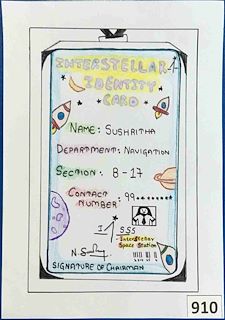 INTERSTELLAR
IDENTITY
CARD
NAME: SUSHRITHA
DEPARTMENT: NAVIGATION
SECTION: B-17
CONTACT
NUMBER: 99********
ISSS
InterStellar
Space Station
SIGNATURE OF CHAIRMAN
910